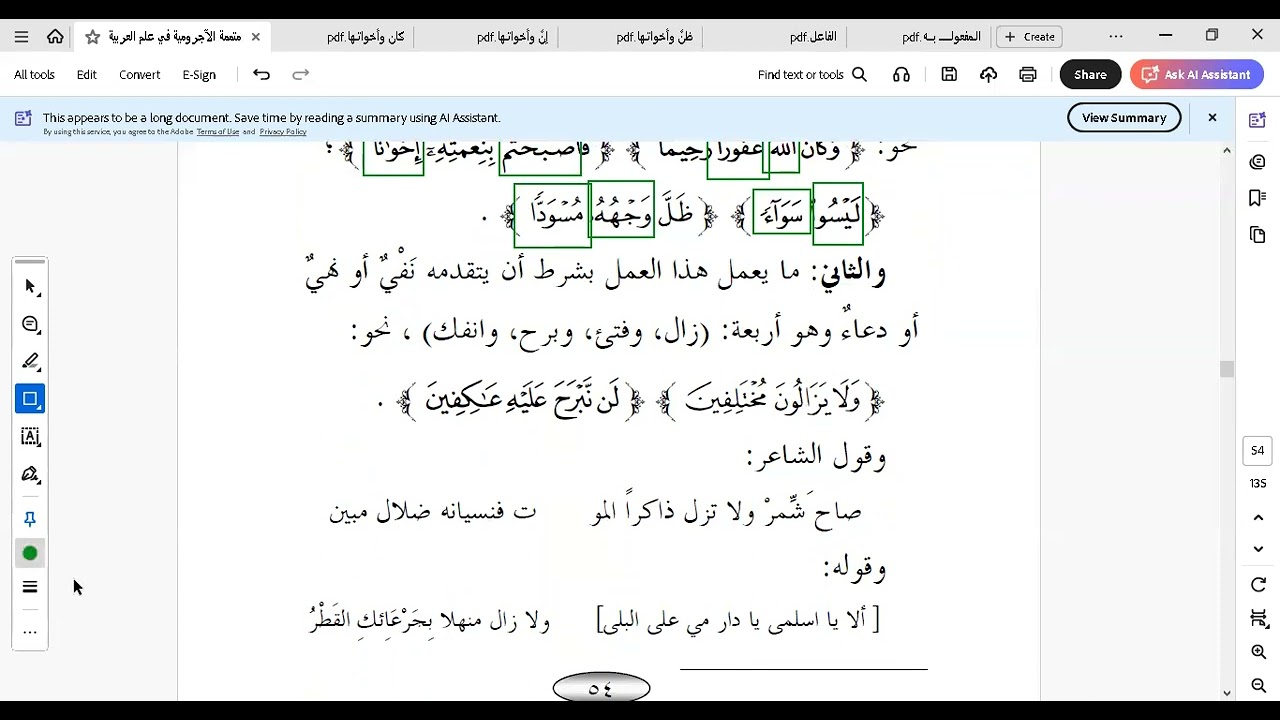 متممة الآجرومية في علم العربية
كان وأخواتها.pdf
إنَّ وأخواتها.pdf
ظنَّ وأخواتها.pdf
الفاعل.pdf
المفعول به.pdf
+ Create
All tools Edit Convert E-Sign
Find text or tools
Share
Ask AI Assistant
This appears to be a long document. Save time by reading a summary using AI Assistant.
By using this service, you agree to the Adobe Terms of Use and Privacy Policy
View Summary
نحو: ﴿ وَكَانَ اللَّهُ غَفُورًا رَحِيمًا ﴾ ﴿ فَأَصْبَحْتُم بِنِعْمَتِهِۦٓ إِخْوَٰنًا ﴾ ؛
﴿ لَيْسُوا۟ سَوَآءً ﴾ ﴿ ظَلَّ وَجْهُهُۥ مُسْوَدًّا ﴾ .
والثاني: ما يعمل هذا العمل بشرط أن يتقدمه نَفْيٌ أو نهيٌ
أو دعاءٌ وهو أربعة: (زال، وفتئ، وبرح، وانفك) ، نحو:
﴿ وَلَا يَزَالُونَ مُخْتَلِفِينَ ﴾ ﴿ لَن نَّبْرَحَ عَلَيْهِ عَٰكِفِينَ ﴾ .
وقول الشاعر:
صاحَ شِّمرْ ولا تزل ذاكراً المو ت فنسيانه ضلال مبين
وقوله:
[ ألا يا اسلمى يا دار مي على البلى] ولا زال منهلا بِجَرْعَائِكِ القَطْرُ
٥٤
54
135